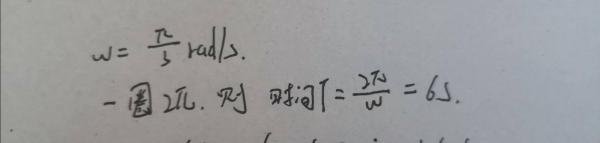 w = π/3 rad/s.
一圈2π. 则 时间T = 2π/w = 6s.